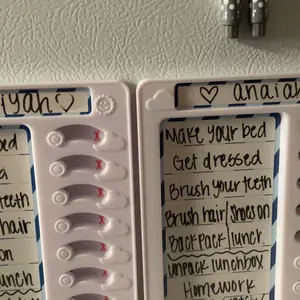 iyah ♡
♡ anaiah
ed
a
teeth
hair
on
unch
ch
Make your bed
Get dressed
Brush your teeth
Brush hair/shoes on
Backpack/lunch
unpack lunchbox
Homework